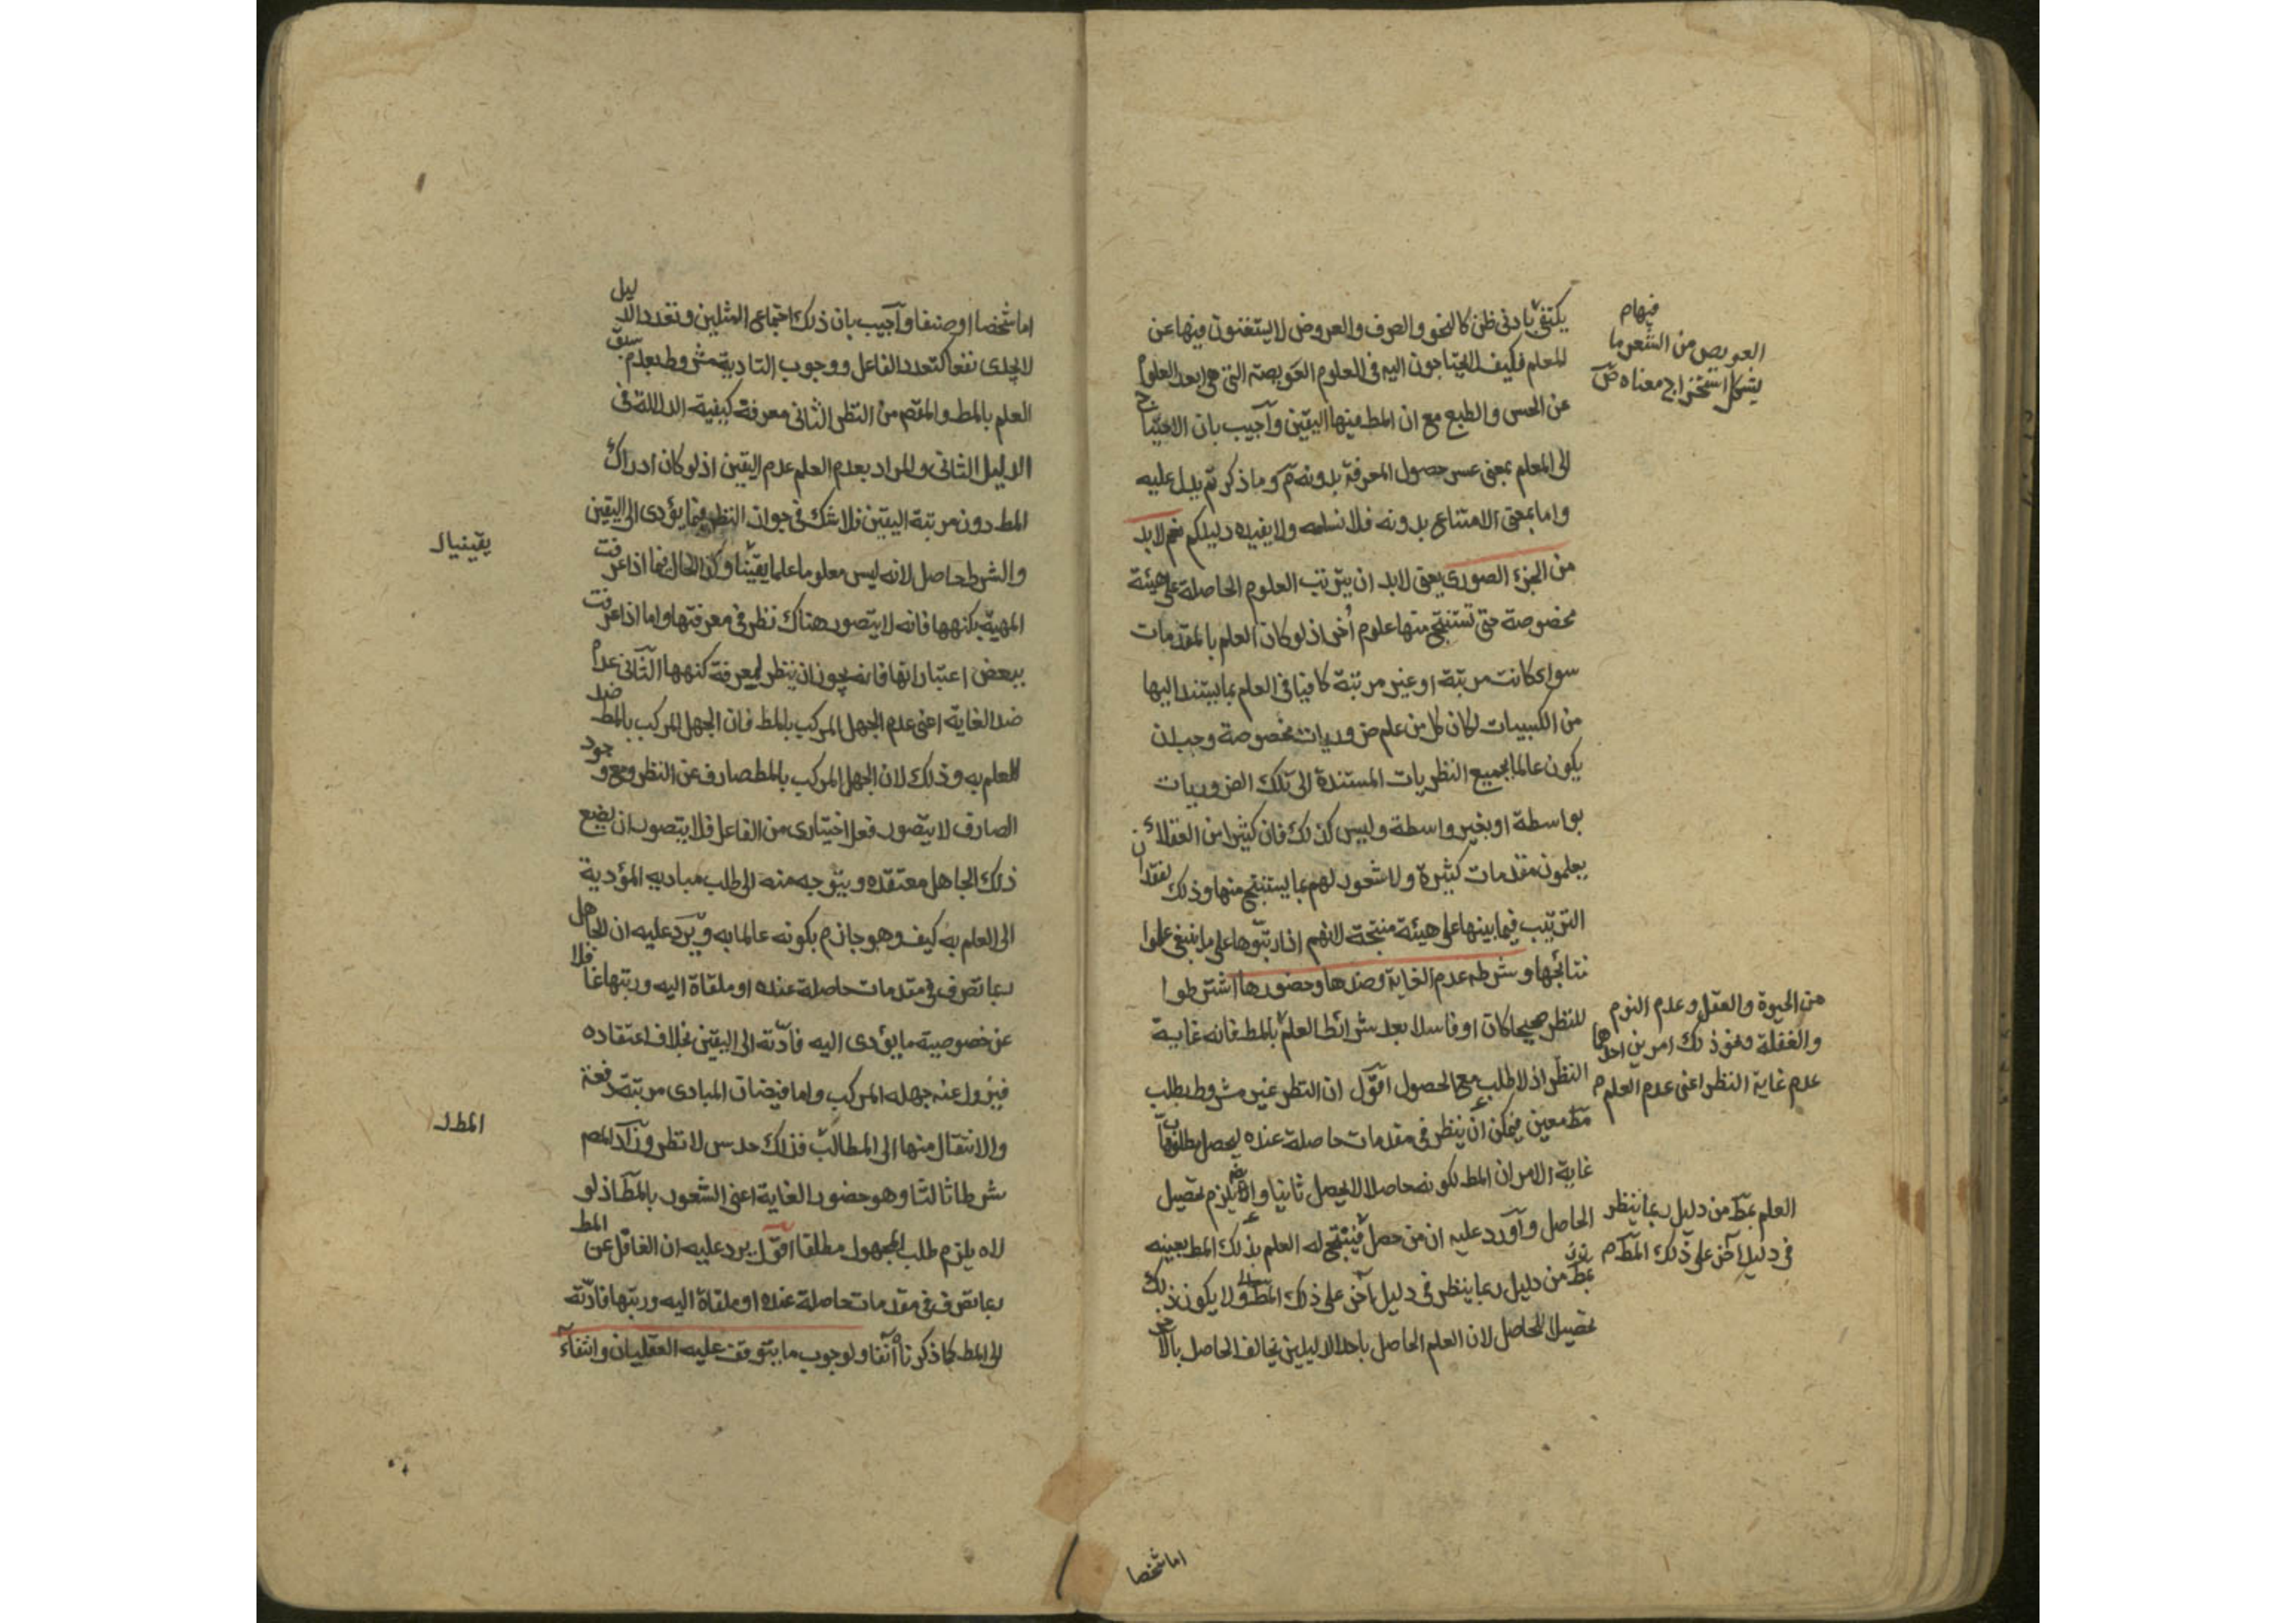 يكتفى بادنى ظن كالنحو والصرف والعروض لا يستغنون فيها عن
المعلم فكيف لا يحتاجون اليه فى العلوم العويصة التى هى ابعد العلوم
عن الحس والطبع مع ان المط فيها اليقين وآجيب بان الاحتياج
الى المعلم بمعنى عسر حصول المعرفة بدونه م وما ذكرتم يدل عليه
واما بمعنى الامتناع بدونه فلا نسلمه ولا يفيده دليلكم نعم لابد
من الجزء الصورى يعنى لابد ان يترتب العلوم الحاصلة على هيئة
مخصوصة حتى تستنتج منها علوم أخر اذ لو كان العلم بالمقدمات
سواء كانت مرتبة او غير مرتبة كافيا فى العلم بما يستند اليها
من الكسبيات لكان كل من علم ضروريات مخصوصة وجب ان
يكون عالما بجميع النظريات المستندة الى تلك الضروريات
بواسطة او بغير واسطة وليس كذلك فان كثيرا من العقلاء
يعلمون مقدمات كثيرة ولا شعور لهم بما يستنتج منها وذلك لفقدان
الترتيب فيما بينها على هيئة منتجة لانهم اذا رتبوها على ما ينبغى علموا
نتائجها وشرطه عدم الغاية وضدها وحضورها اشترطوا
للنظر صحيحا كان او فاسدا بعد شرائط العلم بالمط فانه غاية
النظر اذ لا طلب مع الحصول اقول ان النظر غير مشروط بطلب
مط معين فيمكن ان ينظر فى مقدمات حاصلة عنده ليحصل مطلوبها
غاية الامر ان المط لكونه حاصلا لا يحصل ثانيا يلزم تحصيل
الحاصل وآورد عليه ان من حصل له العلم بذلك المط بعينه
بمط من دليل ربما ينظر فى دليل آخر على ذلك المط ولا يكون ذلك
تحصيلا للحاصل لان العلم الحاصل باحد الدليلين يخالف الحاصل بالآخر
فيهام
العويص من الشعر ما
يشكل استخراج معناه ص
من الحيوة والعقل وعدم النوم
والغفلة ونحو ذلك امرين احدهما
عدم غاية النظر اعنى عدم العلم م
العلم بمط من دليل ربما ينظر
فى دليل آخر على ذلك المط م
اما شخصا
اما شخصا او صنفا وآجيب بان ذلك اجتماع المثلين وتعدد الدليل
لا يجدى نفعا كتعدد الفاعل ووجوب التادية مشروط بعدم سبق
العلم بالمط والمقصم من النظر الثانى معرفة كيفية الدلالة فى
الدليل الثانى والمراد بعدم العلم عدم اليقين اذ لو كان ادراك
المط دون مرتبة اليقين فلا شك فى جواز النظر فيما يؤدى الى اليقين
والشرط حاصل لانه ليس معلوما علما يقينا وكذا الحال فيما اذا عرفت
المهية بكنهها فانه لا يتصور هناك نظر فى معرفتها واما اذا عرفت
ببعض اعتباراتها فانه يجوز ان ينظر لمعرفة كنهها الثانى عدم
ضد الغاية اعنى عدم الجهل المركب بالمط فان الجهل المركب بالمط ضد
للعلم به وذلك لان الجهل المركب بالمط صارف عن النظر ومع وجود
الصارف لا يتصور فعل اختيارى من الفاعل فلا يتصور ان يضيع
ذلك الجاهل معتقده ويتوجه منه الى طلب مباديه المؤدية
الى العلم به كيف وهو جازم بكونه عالما به ويرد عليه ان الجاهل
ربما تصرف فى مقدمات حاصلة عنده او ملقاة اليه ورتبها غافلا
عن خصوصية ما يؤدى اليه فادته الى اليقين بخلاف اعتقاده
فيزول عنه جهله المركب واما فيضان المبادى مرتبة دفعة
والانتقال منها الى المطالب فذلك حدس لا نظر وزاد المصم
شرطا ثالثا وهو حضور الغاية اعنى الشعور بالمط اذ لو
لاه يلزم طلب المجهول مطلقا اقول يرد عليه ان الغافل عن المط
ربما تصرف فى مقدمات حاصلة عنده او ملقاة اليه ورتبها فادته
الى المط كما ذكرنا آنفا ولوجوب ما يتوقف عليه العقليان وانتفاء
يقينيا
المط